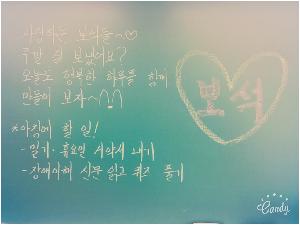 사랑하는 보석들~♡
주말 잘 보냈어요?
오늘도 행복한 하루를 함께
만들어 보자~^^
*아침에 할 일!
- 일기. 흡요일 서약서 내기
- 장애이해 신문 읽고 퀴즈 풀기
보석
Candy